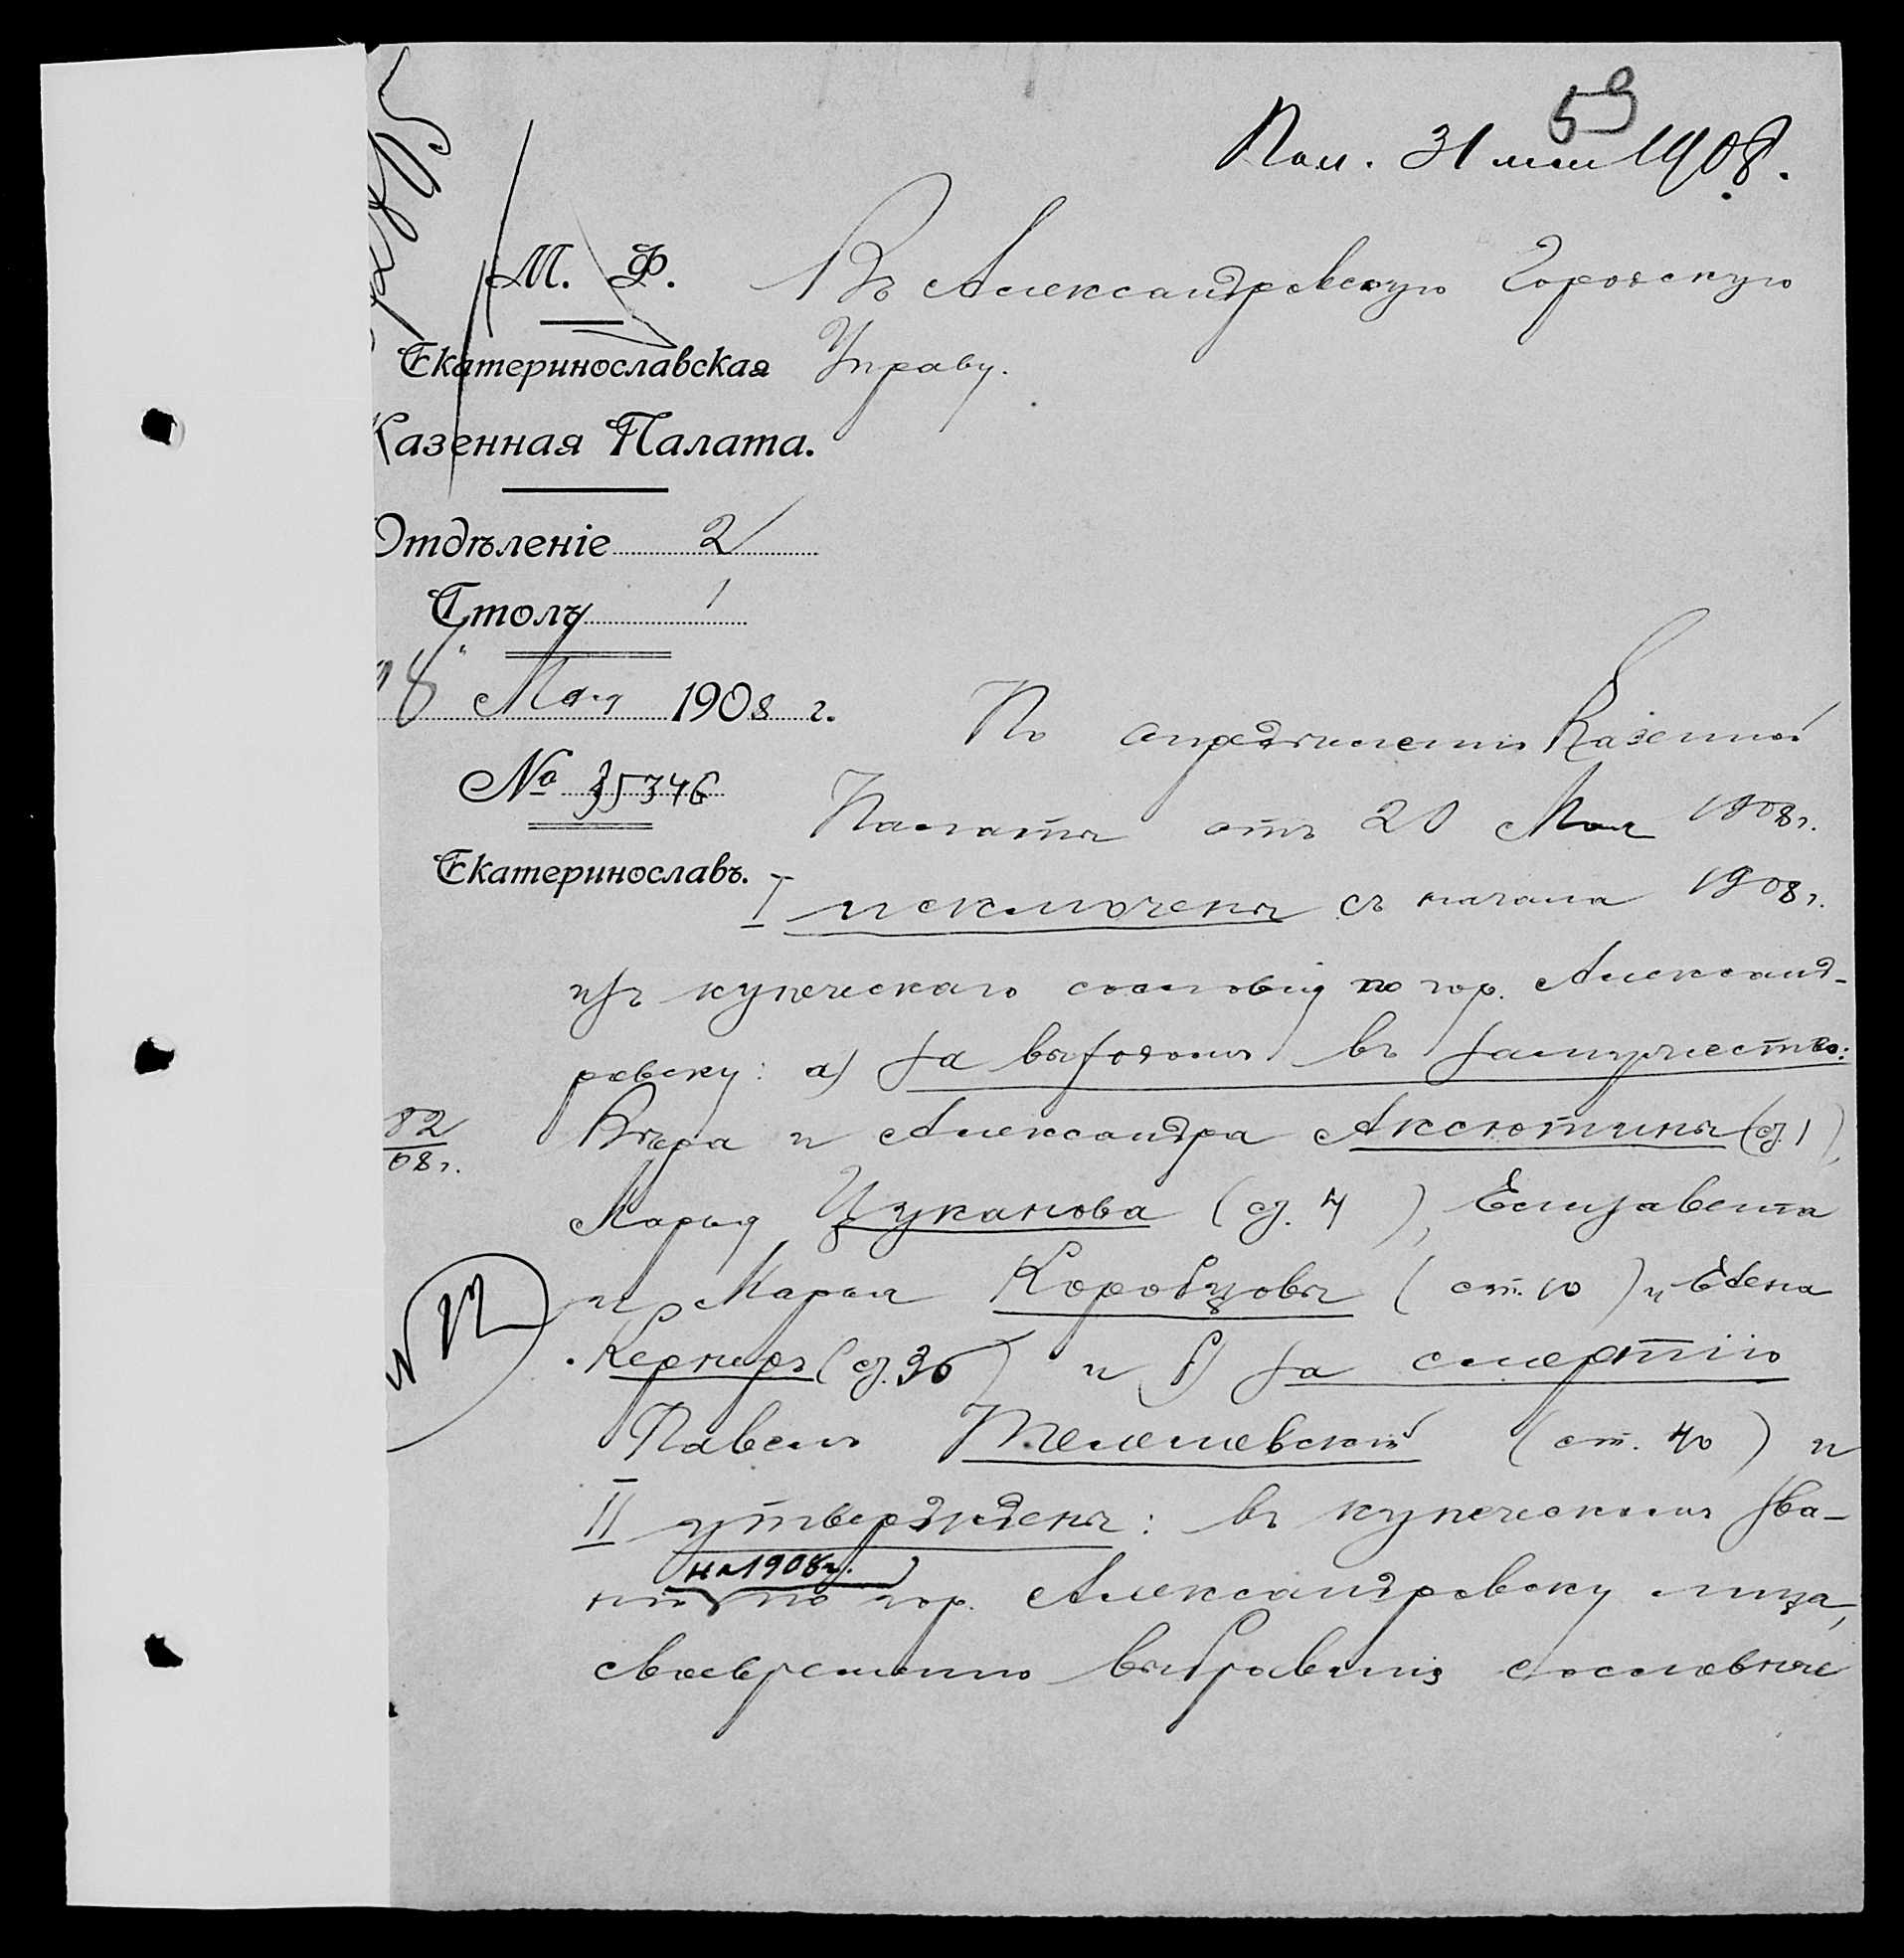 59
Пол. 31 мая 1908.
М. Ф.
Въ Александровскую Городскую
Управу.
Екатеринославская
Казенная Палата.
Отдѣленіе 2
Столъ 1
8 Мая 1908 г.
№ 35346
Екатеринославъ.
По опредѣленію Казенной
Палаты отъ 20 Мая 1908 г.
I исключены съ начала 1908 г.
изъ купеческаго сословія по гор. Александ-
ровску: а) за выходомъ въ замужество:
82
08 г.
Вѣра и Александра Аксютины (ст. 1),
Марья Цуканова (ст. 7), Елизавета
и Марья Коробцовы (ст. 10) и Елена
Кернеръ (ст. 36) и б) за смертію
Павелъ Телешевскій (ст. 40) и
II утверждены: въ купеческомъ зва-
на 1908 г.
ніи по гор. Александровску лица,
своевременно выбравшія сословные